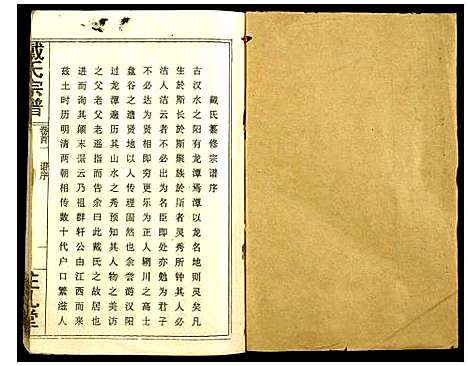 戴氏纂修宗谱序
古汉水之阳有龙潭焉潭以龙名地则灵矣凡
生於斯长於斯聚族於斯者灵秀所钟其人必
洁人洁云者不必出为名臣即处亦勿为君子
不必达为贤相即穷更乐为正人辋川之高士
盘谷之遗贤地以人传可也余尝游汉阳
过龙潭遍历其山水之秀预知其人物之美访
之父老父老遥指而告余曰此戴氏之故居也
进而询其颠末据云乃祖群轩公由江西而来
兹土时历明清两朝相传数十代户口繁滋人
戴氏宗谱
卷首
谱序
一